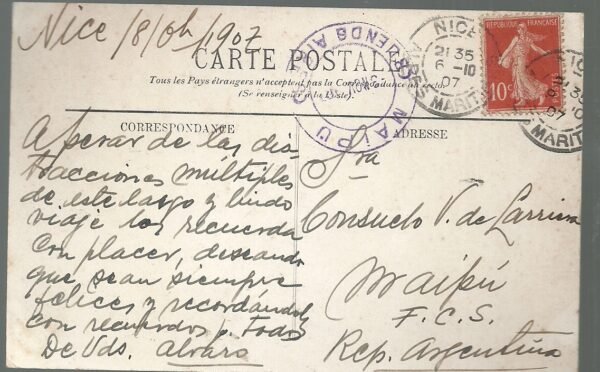 Nice /8/Obr/1907
CARTE POSTALE
Tous les Pays étrangers n'acceptent pas la Correspondance au recto.
(Se renseigner à la Poste).
MAIPU
BUENOS AIRES
NOV
NICE
21 35
6 -10
07
ALPES MARIT
REPUBLIQUE FRANÇAISE
10 c
NICE
21 35
6 -10
07
MARIT
CORRESPONDANCE
A pesar de las dis-
tracciones múltiples
de este largo y lindo
viaje los recuerda
con placer, deseando
que sean siempre
felices y recordandoles
con recuerdos a Todos
De Vds. Alvaro
ADRESSE
Sra
Consuelo V. de Larriera
Maipú
F.C.S.
Rep. Argentina